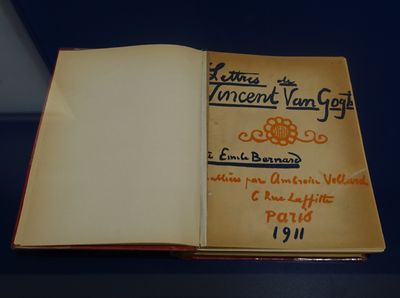 Lettres de
Vincent Van Gogh
à Emile Bernard
publiées par Ambroise Vollard
6 Rue Laffitte
PARIS
1911